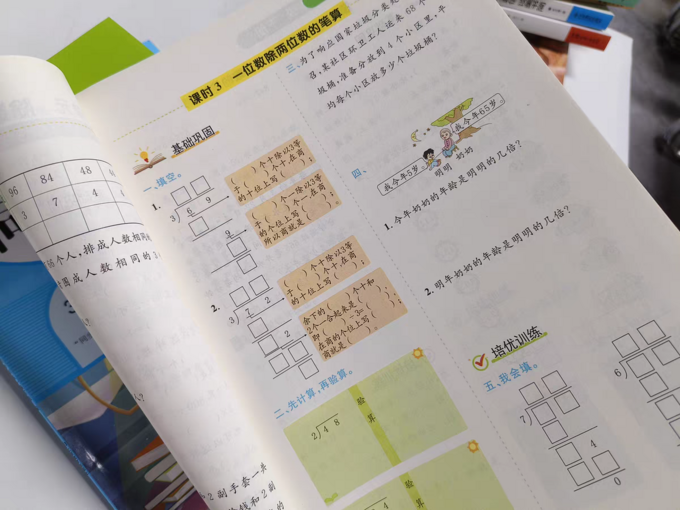 96 84 48
3 7 4
6个人,排成人数相同
围成人数相同的3
课时3 一位数除两位数的笔算
基础巩固
一、填空。
1.
3 6 9
9
( )个十除以3等
于( )个十,在商
的十位上写( );
( )个一除以3等
于( )个一,在商
的个位上写( ),
所以商就是( )。
2.
3 7 2
2
( )个十除以3等
于( )个十,在商
的十位上写( );
余下的( )个十和
2个一合起来是( ),
即( )÷3=( ),
在商的个位上写( ),
商就是( )。
二、先计算,再验算。
2 4 8
验
算
4
验
算
三、为了响应国家垃圾分类
召,某社区环卫工人运来68个
垃圾桶,准备分放到4个小区里。平
均每个小区放多少个垃圾桶?
四、
我今年65岁。
我今年5岁。
明明 奶奶
1.今年奶奶的年龄是明明的几倍?
2.明年奶奶的年龄是明明的几倍?
培优训练
五、我会填。
7
4
0
6
2副手套一共
线和2副
的